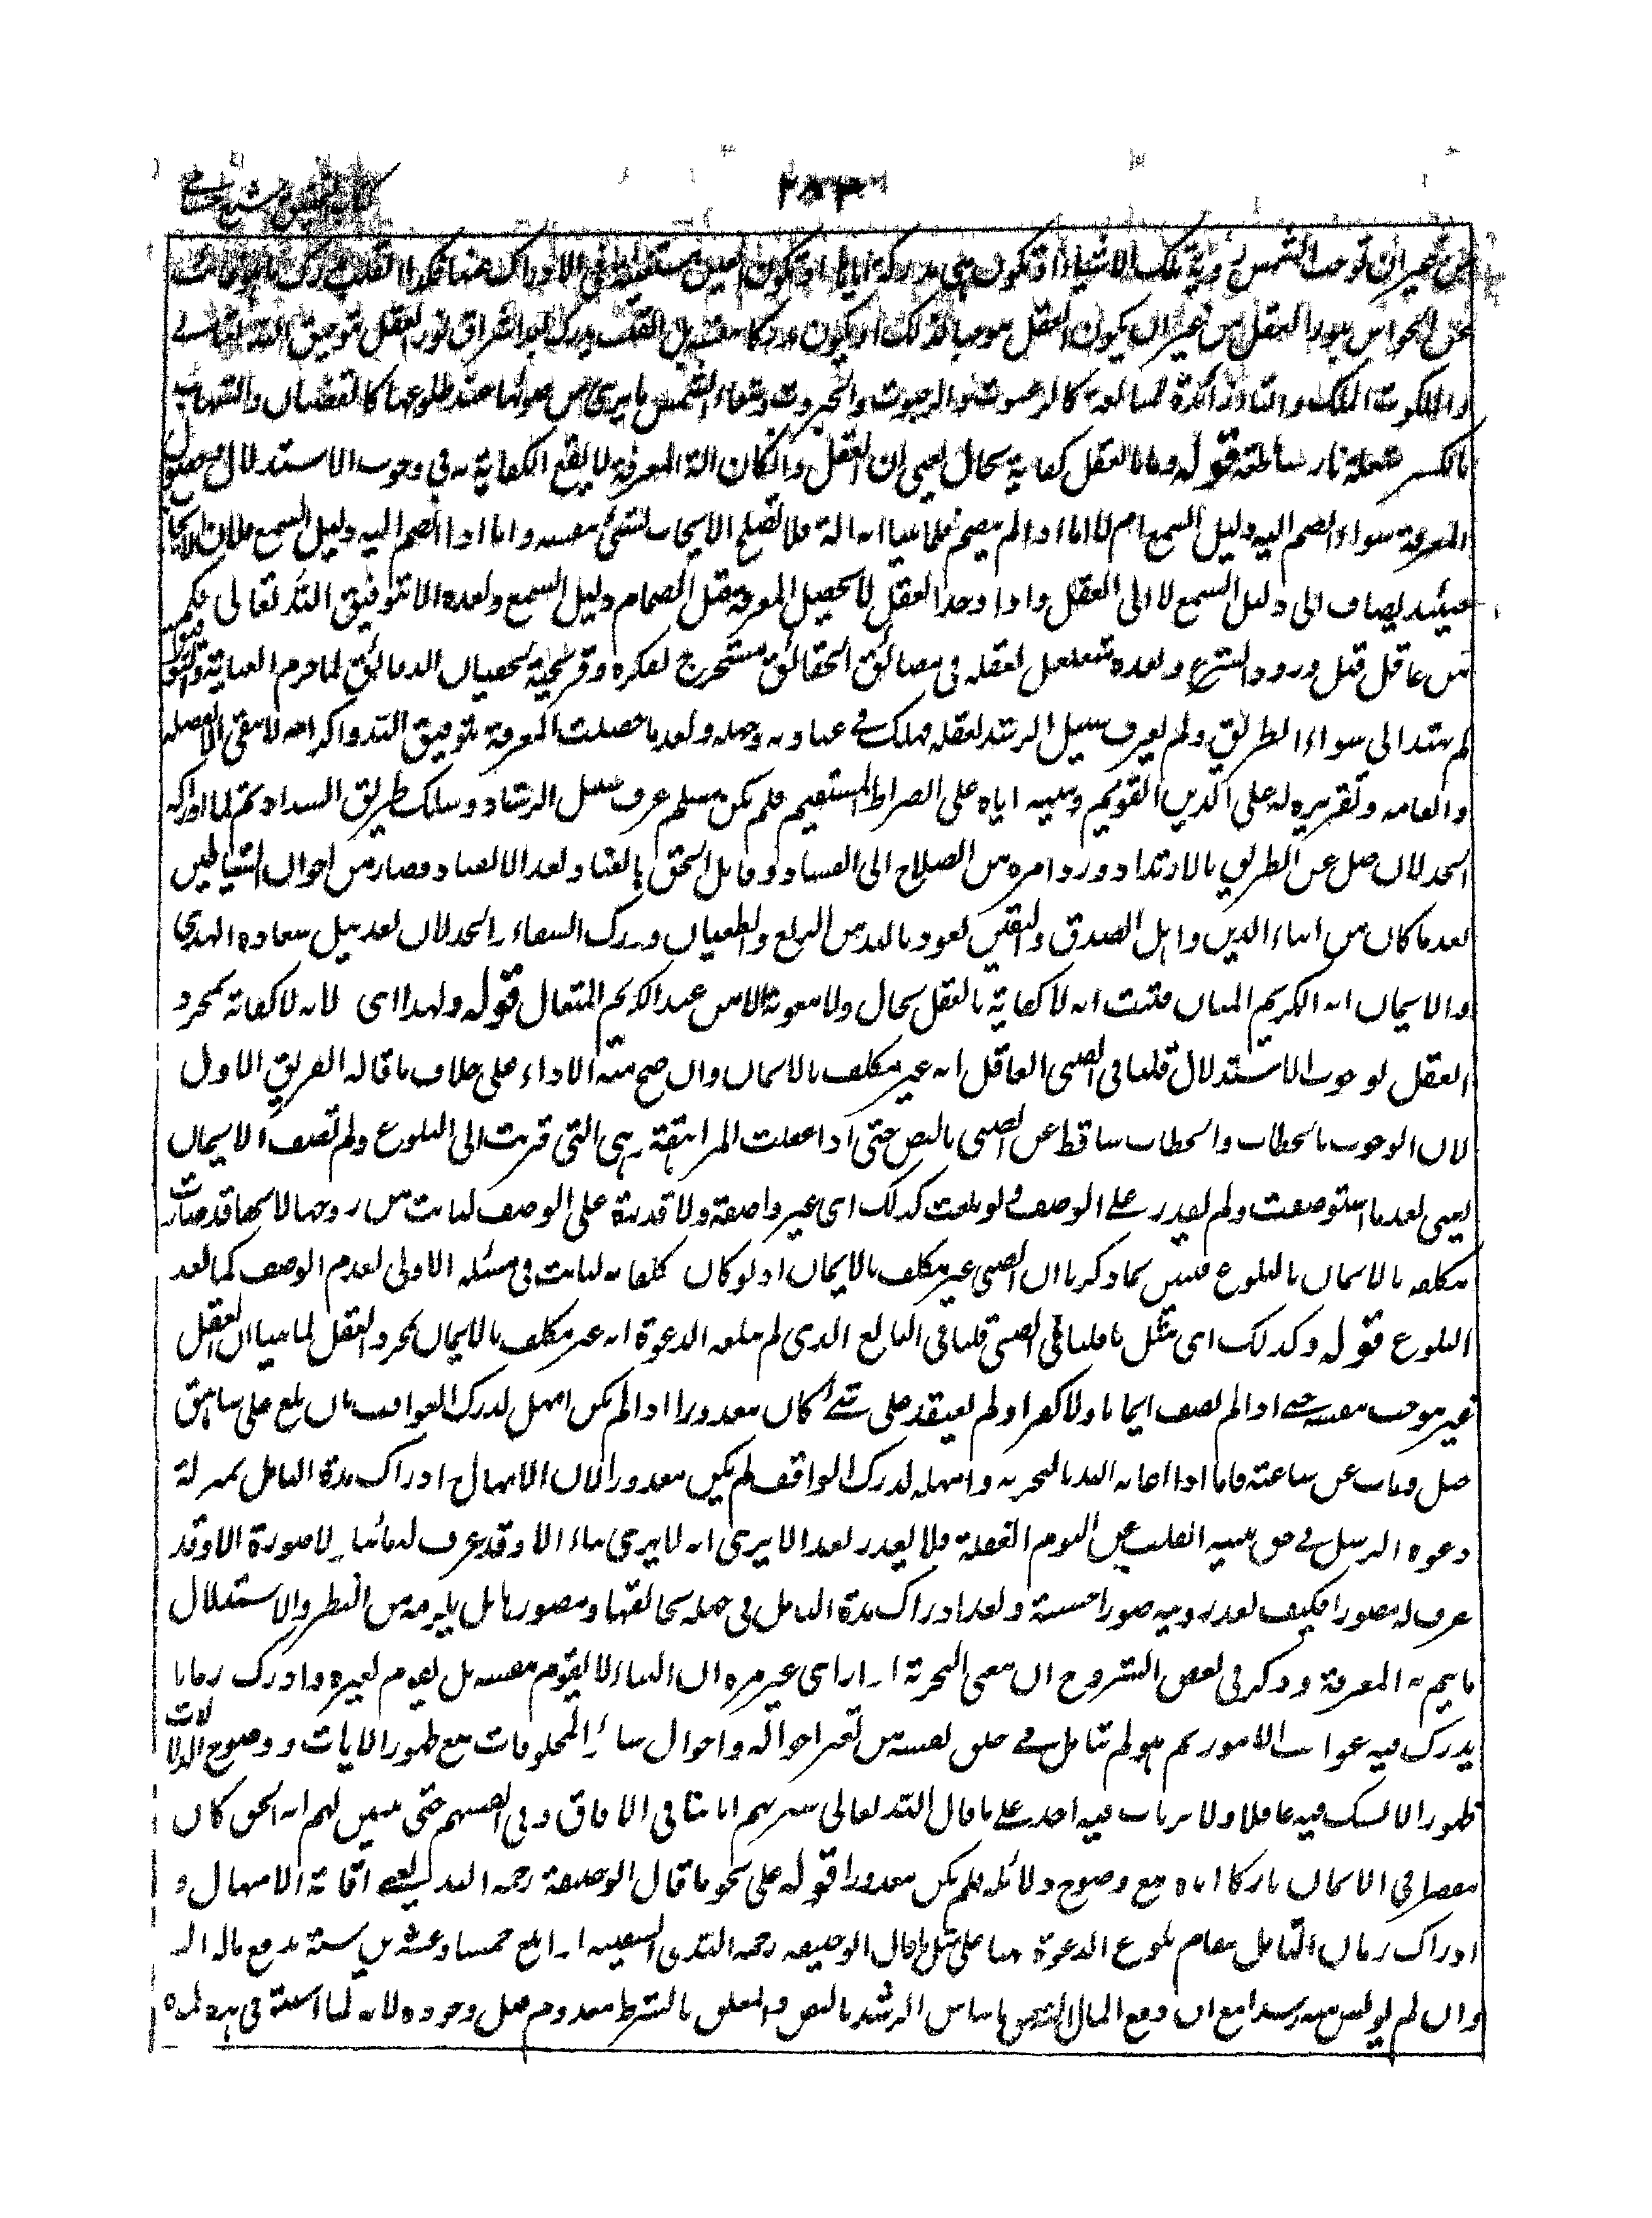 ٢٥٣
من غير ان توجب الشمس رؤية تلك الاشياء او تكون هي مدركة اياها او تكون العين مستغنية في الادراك عنها فكذا القلب يدرك ما هو غائب
عن الحواس بنور العقل من غير ان يكون العقل موجبا لذلك او يكون مدركا بنفسه بل القلب يدرك بعد اشراق نور العقل بتوفيق الله تعالى
والملكوت الملك والتاء زائدة للمبالغة كالرغبوت والرحبوت والجبروت وشعاع الشمس ما يرى من ضوئها عند طلوعها كالقضبان والشهاب
بالكسر شعلة نار ساطعة قوله وما بالعقل كفاية بحال يعني ان العقل وان كان آلة المعرفة لا يقع الكفاية به في وجوب الاستدلال وحصول
المعرفة سواء انضم اليه دليل السمع ام لا اما اذا لم ينضم فلما بينا انه آلة فلا تصلح لايجاب شيء بنفسه واما اذا انضم اليه دليل السمع فلان الايجاب
حينئذ يضاف الى دليل السمع لا الى العقل واذا وجد العقل لا يحصل المعرفة قبل انضمام دليل السمع وبعده الا بتوفيق الله تعالى فكم
من عاقل قبل ورود الشرع وبعده متغلغل بعقله في مضائق الحقائق مستخرج بفكره وقريحته لخفيات الدقائق لما حرم العناية والتوفيق
لم يهتد الى سواء الطريق ولم يعرف سبيل الرشد بعقله فهلك في عناده وجهله وبعد ما حصلت المعرفة بتوفيق الله واكرامه لا يبقى الا بفضله
وانعامه وتقريره له على الدين القويم وتثبيته اياه على الصراط المستقيم فلم يكن مسلم عرف سبيل الرشاد وسلك طريق السداد ثم لما ادركه
الخذلان ضل عن الطريق بالارتداد ورد امره من الصلاح الى الفساد وقابل الحق بالعناد بعد الانقياد فصار من اخوان الشياطين
بعد ما كان من ابناء الدين واهل الصدق واليقين نعوذ بالله من الزيغ والطغيان ودرك الشقاء والخذلان بعد نيل سعادة الهدى
والايمان انه الكريم المنان فثبت انه لا كفاية بالعقل بحال ولا معونة الا من عند الكريم المتعال قوله ولهذا اي لانه لا كفاية بمجرد
العقل لوجوب الاستدلال قلنا في الصبي العاقل انه غير مكلف بالايمان وان صح منه الاداء على خلاف ما قاله الفريق الاول
لان الوجوب بالخطاب والخطاب ساقط عن الصبي بالنص حتى اذا عقلت المراهقة هي التي قربت الى البلوغ ولم تصف الايمان
يعني بعد ما استوصفت ولم تقدر على الوصف ولو بلغت كذلك اي غير واصفة ولا قادرة على الوصف لبانت من زوجها لانها قد صارت
مكلفة بالايمان بالبلوغ فتبين بما ذكرنا ان الصبي غير مكلف بالايمان اذ لو كان مكلفا به لبانت في مسئلة الاولى لعدم الوصف كما بعد
البلوغ قوله وكذلك اي مثل ما قلنا في الصبي قلنا في البالغ الذي لم تبلغه الدعوة انه غير مكلف بالايمان بمجرد العقل لما بينا ان العقل
غير موجب بنفسه حتى اذا لم يصف ايمانا ولا كفرا ولم يعتقد على شيء كان معذورا اذا لم يكن امهل لدرك العواقب بان بلغ على شاهق
جبل ومات من ساعته فاما اذا اعانه الله بالتجربة وامهله لدرك العواقب لم يكن معذورا لان الامهال وادراك مدة التأمل بمنزلة
دعوة الرسل في حق تنبيه القلب عن نوم الغفلة فلا يعذر بعد الا يرى انه لا يرى بناء الا وقد عرف له بانيا ولا صورة الا وقد
عرف له مصورا فكيف يعذر برؤية صور حسنة وبعد ادراك مدة التأمل في جهله بخالقها ومصورها بل يلزمه من النظر والاستدلال
ما يتم به المعرفة وذكر في بعض الشروح ان معنى التجربة انه رأى غير مرة ان البناء لا يقوم بنفسه بل يقوم بغيره وادرك زمانا
يدرك فيه عواقب الامور ثم هو لم يتامل في خلق نفسه من تغير احواله واحوال سائر المخلوقات مع ظهور الايات ووضوح الدلالات
ظهورا لا يشك فيه عاقل ولا يرتاب فيه احد على ما قال الله تعالى سنريهم اياتنا في الافاق وفي انفسهم حتى يتبين لهم انه الحق كان
مقصرا في الايمان تاركا اياه مع وضوح دلائله فلم يكن معذورا قوله على نحو ما قال ابو حنيفة رحمه الله يعني اقامة الامهال و
ادراك زمان التأمل مقام بلوغ الدعوة هنا على مثل ما قال ابو حنيفة رحمه الله في السفيه اذا بلغ خمسا وعشرين سنة يدفع ماله اليه
وان لم يونس منه رشدا مع ان دفع المال اليه معلق بايناس الرشد بالنص والمعلق بالشرط معدوم قبل وجوده لانه لما استوفى هذه المدة